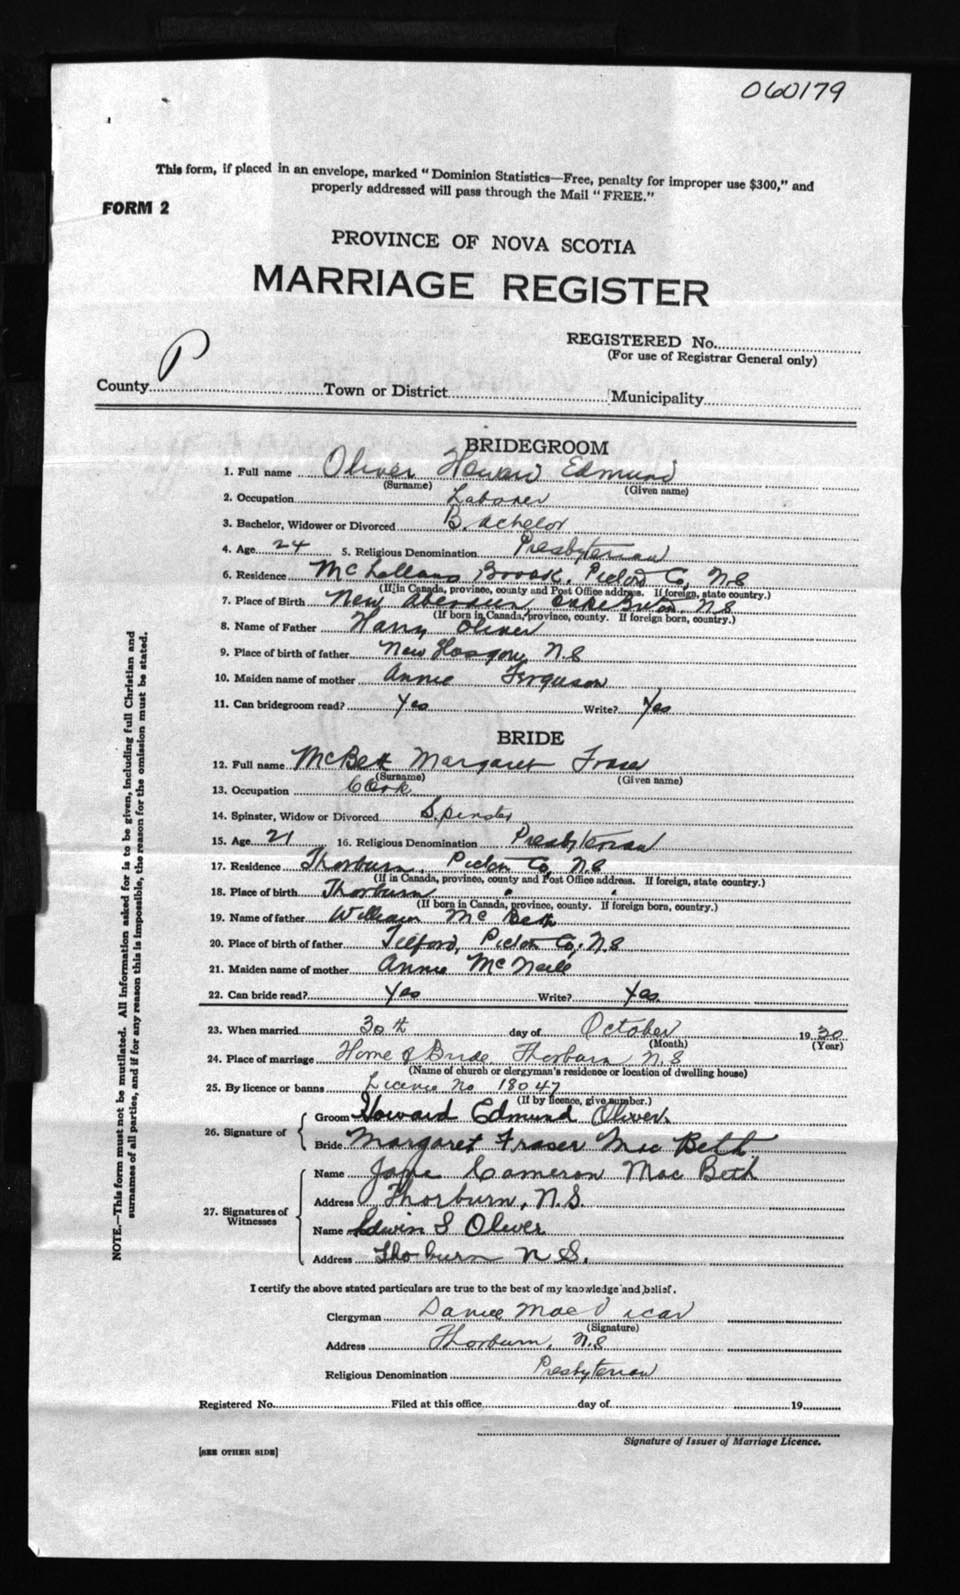 060179
This form, if placed in an envelope, marked "Dominion Statistics—Free, penalty for improper use $300," and
properly addressed will pass through the Mail "FREE."
FORM 2
PROVINCE OF NOVA SCOTIA
MARRIAGE REGISTER
REGISTERED No.
(For use of Registrar General only)
County P Town or District Municipality
BRIDEGROOM
1. Full name Oliver Howard Edmund
(Surname) (Given name)
2. Occupation Laborer
3. Bachelor, Widower or Divorced Bachelor
4. Age 24 5. Religious Denomination Presbyterian
6. Residence McLellans Brook, Pictou Co, N.S
(If in Canada, province, county and Post Office address. If foreign, state country.)
7. Place of Birth New Aberdeen, Cape Breton N S
(If born in Canada, province, county. If foreign born, country.)
8. Name of Father Harry Oliver
9. Place of birth of father New Glasgow N S
10. Maiden name of mother Annie Ferguson
11. Can bridegroom read? Yes Write? Yes
BRIDE
12. Full name McBeth Margaret Fraser
(Surname) (Given name)
13. Occupation Clerk
14. Spinster, Widow or Divorced Spinster
15. Age 21 16. Religious Denomination Presbyterian
17. Residence Thorburn, Pictou Co, N.S
(If in Canada, province, county and Post Office address. If foreign, state country.)
18. Place of birth Thorburn " " "
(If born in Canada, province, county. If foreign born, country.)
19. Name of father William McBeth
20. Place of birth of father Telford, Pictou Co, N.S
21. Maiden name of mother Annie McNeill
22. Can bride read? Yes Write? Yes
23. When married 30th day of October 1930
(Month) (Year)
24. Place of marriage Home of Bride Thorburn N.S
(Name of church or clergyman's residence or location of dwelling house)
25. By licence or banns Licence No 18047
(If by licence, give number.)
26. Signature of Groom Howard Edmund Oliver
Bride Margaret Fraser MacBeth
27. Signatures of Witnesses Name Cameron MacBeth
Address Thorburn, N.S.
Name Edwin S Oliver
Address Thorburn N S.
I certify the above stated particulars are true to the best of my knowledge and belief.
Clergyman Daniel MacVicar
(Signature)
Address Thorburn, N.S
Religious Denomination Presbyterian
Registered No. Filed at this office day of 19
Signature of Issuer of Marriage Licence.
[SEE OTHER SIDE]
NOTE.—This form must not be mutilated. All information asked for is to be given, including full Christian and
surnames of all parties, and if for any reason this is impossible, the reason for the omission must be stated.